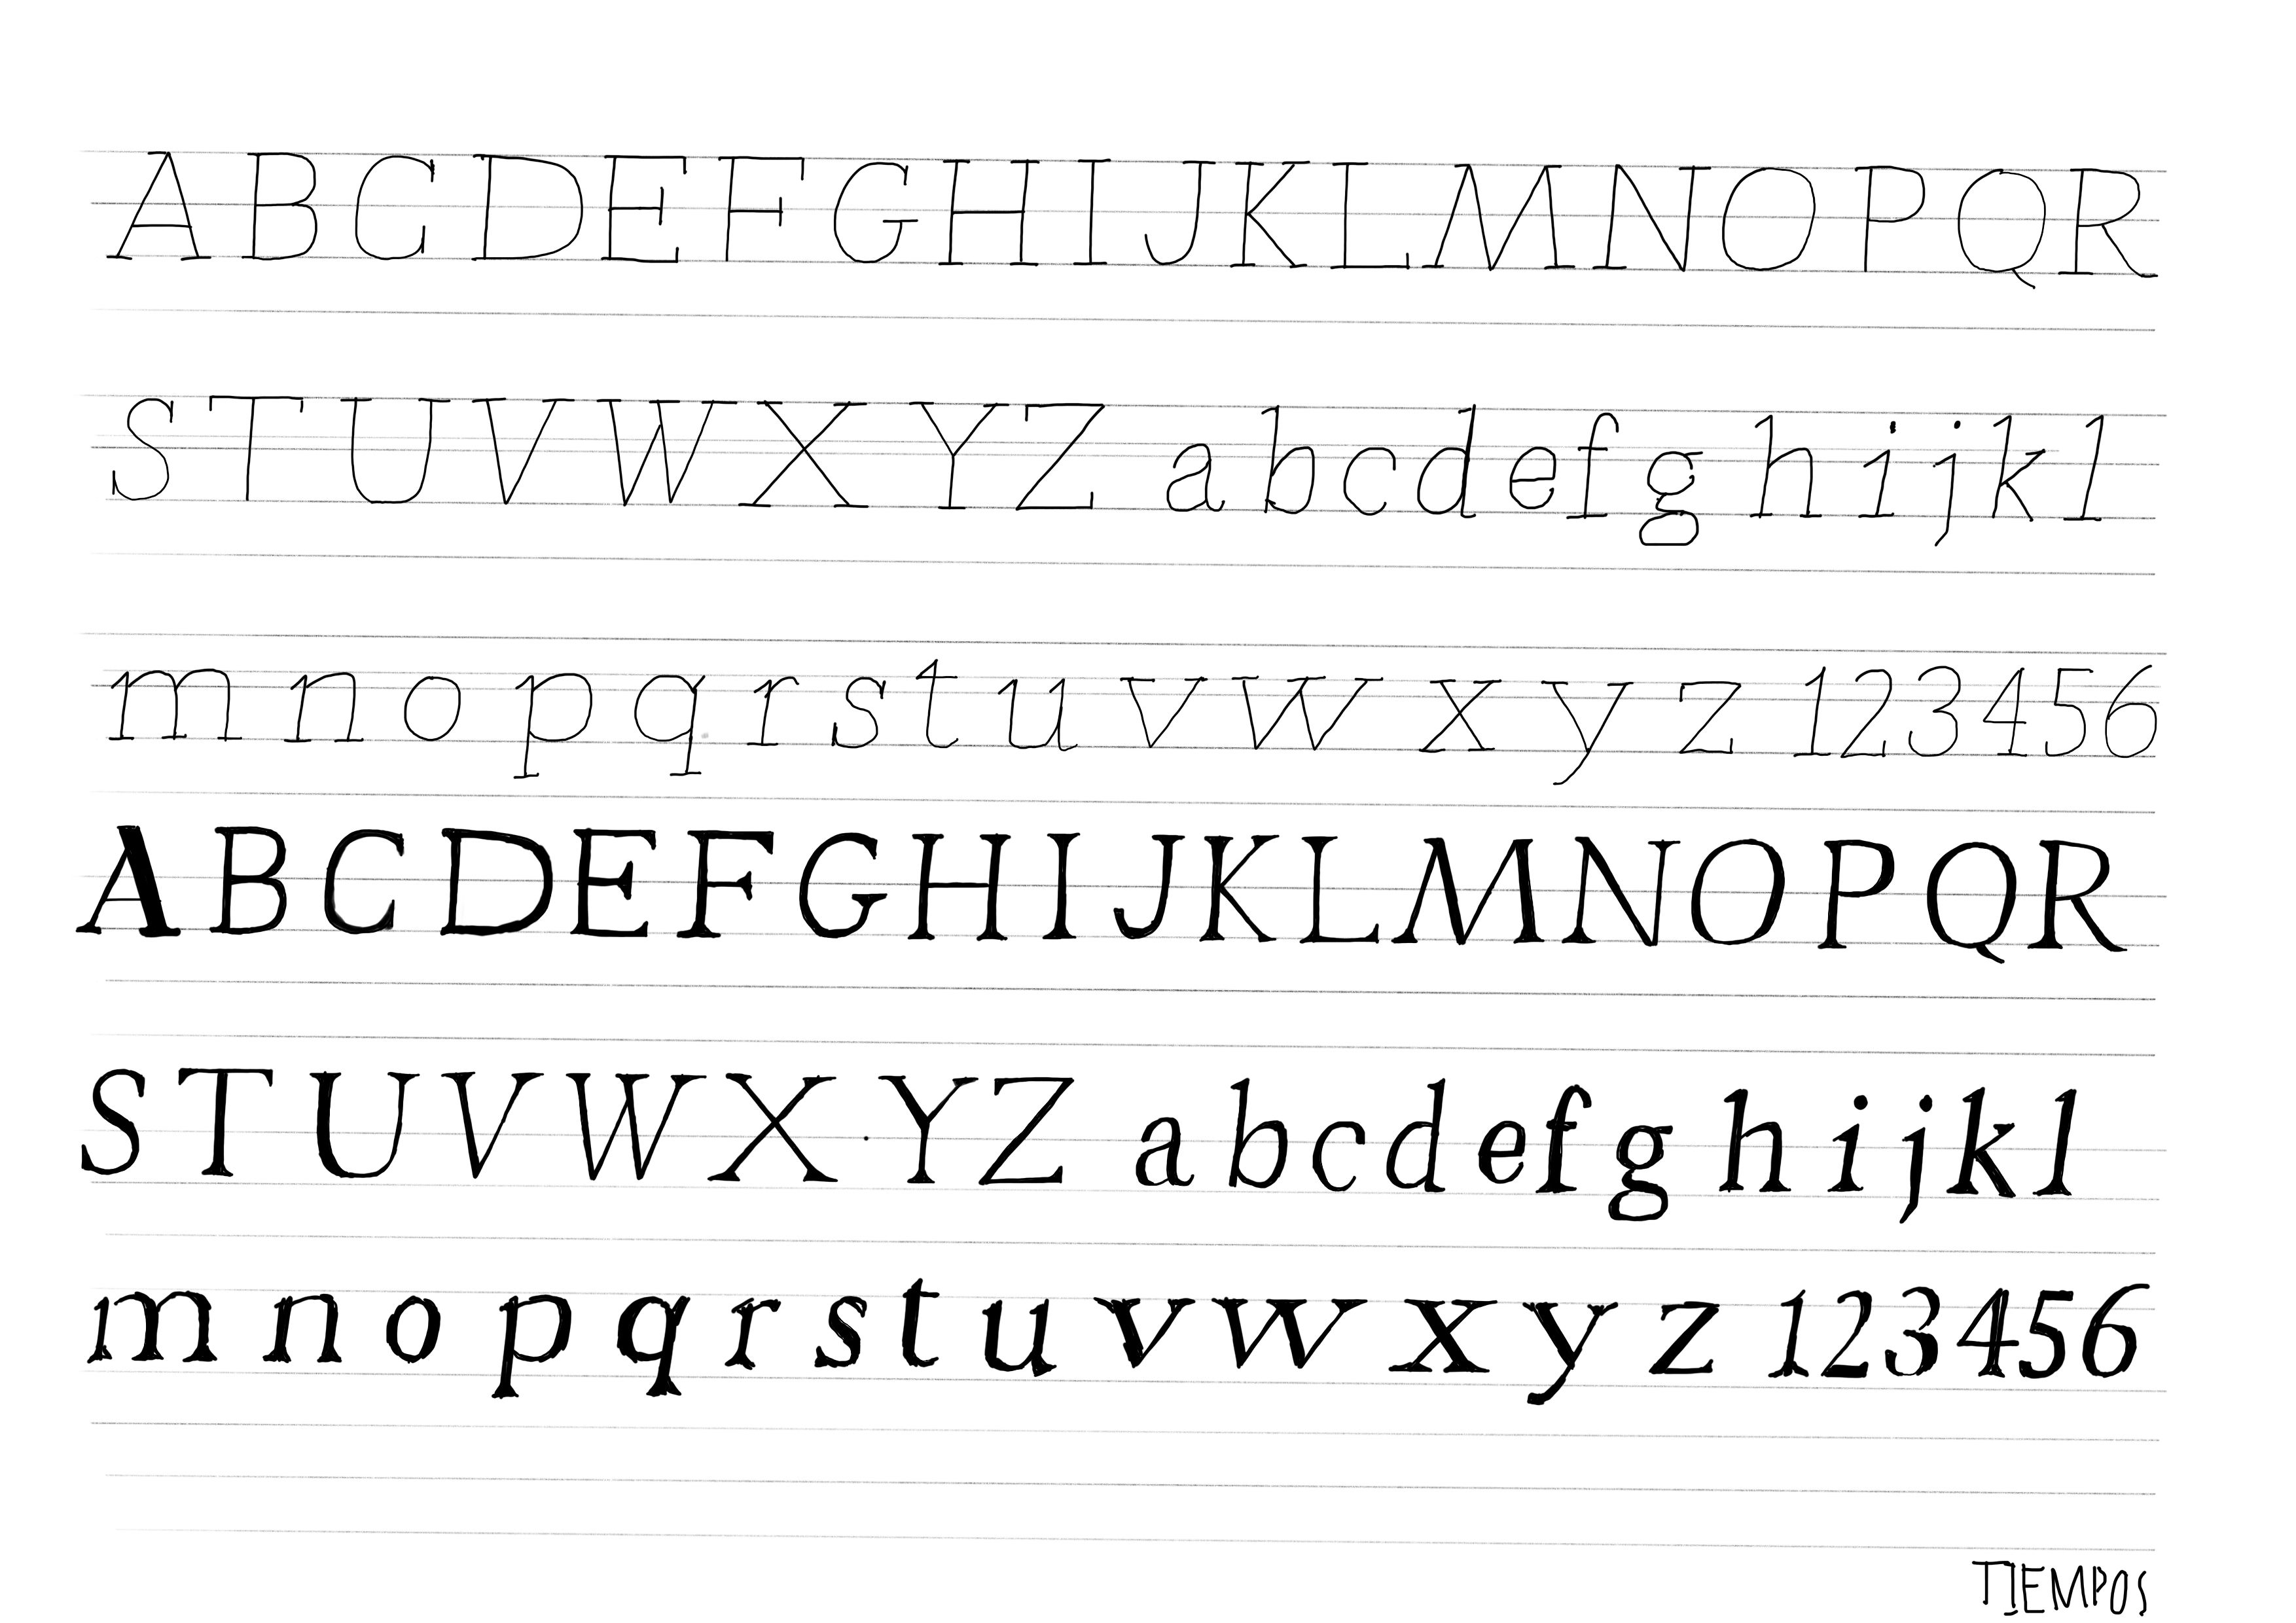 A B C D E F G H I J K L M N O P Q R
S T U V W X Y Z a b c d e f g h i j k l
m n o p q r s t u v w x y z 1 2 3 4 5 6
A B C D E F G H I J K L M N O P Q R
S T U V W X Y Z a b c d e f g h i j k l
m n o p q r s t u v w x y z 1 2 3 4 5 6
TIEMPOS